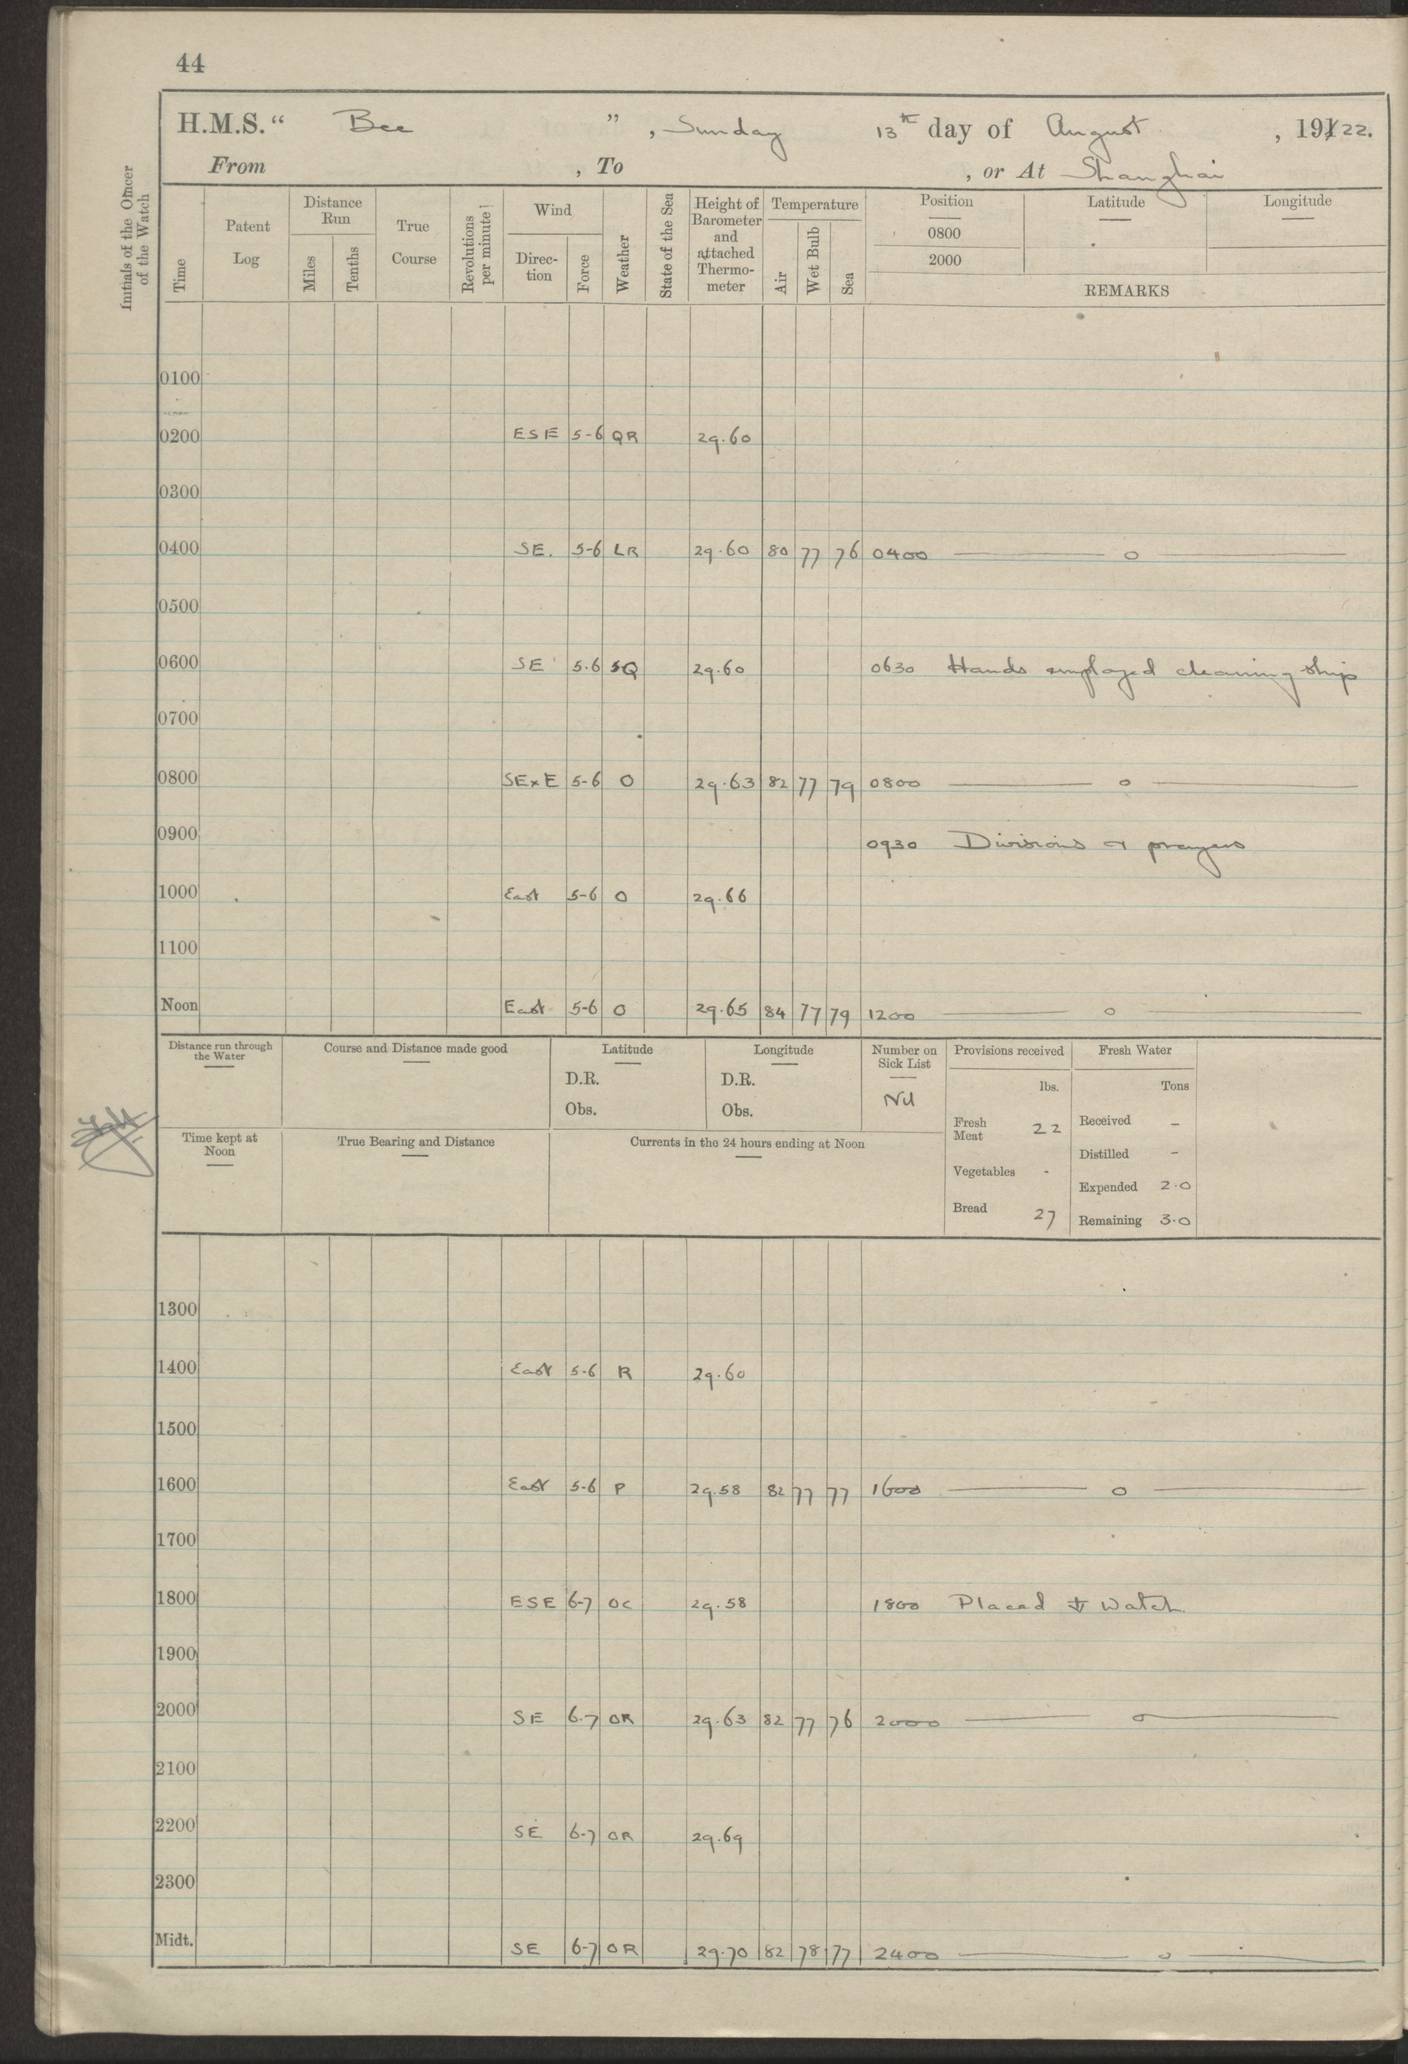 44
H.M.S. “ Bee ”, Sunday 13th day of August, 191/22.
From , To , or At Shanghai
Initials of the Officer of the Watch
Time
Patent Log
Distance Run
Miles
Tenths
True Course
Revolutions per minute
Wind
Direc-tion
Force
Weather
State of the Sea
Height of Barometer and attached Thermo-meter
Temperature
Air
Wet Bulb
Sea
Position Latitude Longitude
0800
2000
REMARKS
0100
0200 ESE 5-6 QR 29.60
0300
0400 SE. 5-6 LR 29.60 80 77 76 0400 — o —
0500
0600 SE 5.6 SQ 29.60 0630 Hands employed cleaning ship
0700
0800 SExE 5-6 O 29.63 82 77 79 0800 — o —
0900 0930 Divisions & prayers
1000 East 5-6 O 29.66
1100
Noon East 5-6 O 29.65 84 77 79 1200 — o —
Distance run through the Water
Course and Distance made good
Latitude
D.R.
Obs.
Longitude
D.R.
Obs.
Number on Sick List
Nil
Provisions received
lbs.
Fresh Meat 22
Vegetables -
Bread 27
Fresh Water
Tons
Received -
Distilled -
Expended 2.0
Remaining 3.0
Time kept at Noon
True Bearing and Distance
Currents in the 24 hours ending at Noon
1300
1400 East 5.6 R 29.60
1500
1600 East 5.6 P 29.58 82 77 77 1600 — o —
1700
1800 ESE 6-7 OC 29.58 1800 Placed Watch
1900
2000 SE 6.7 OR 29.63 82 77 76 2000 — o —
2100
2200 SE 6-7 OR 29.69
2300
Midt. SE 6-7 OR 29.70 82 78 77 2400 — o —